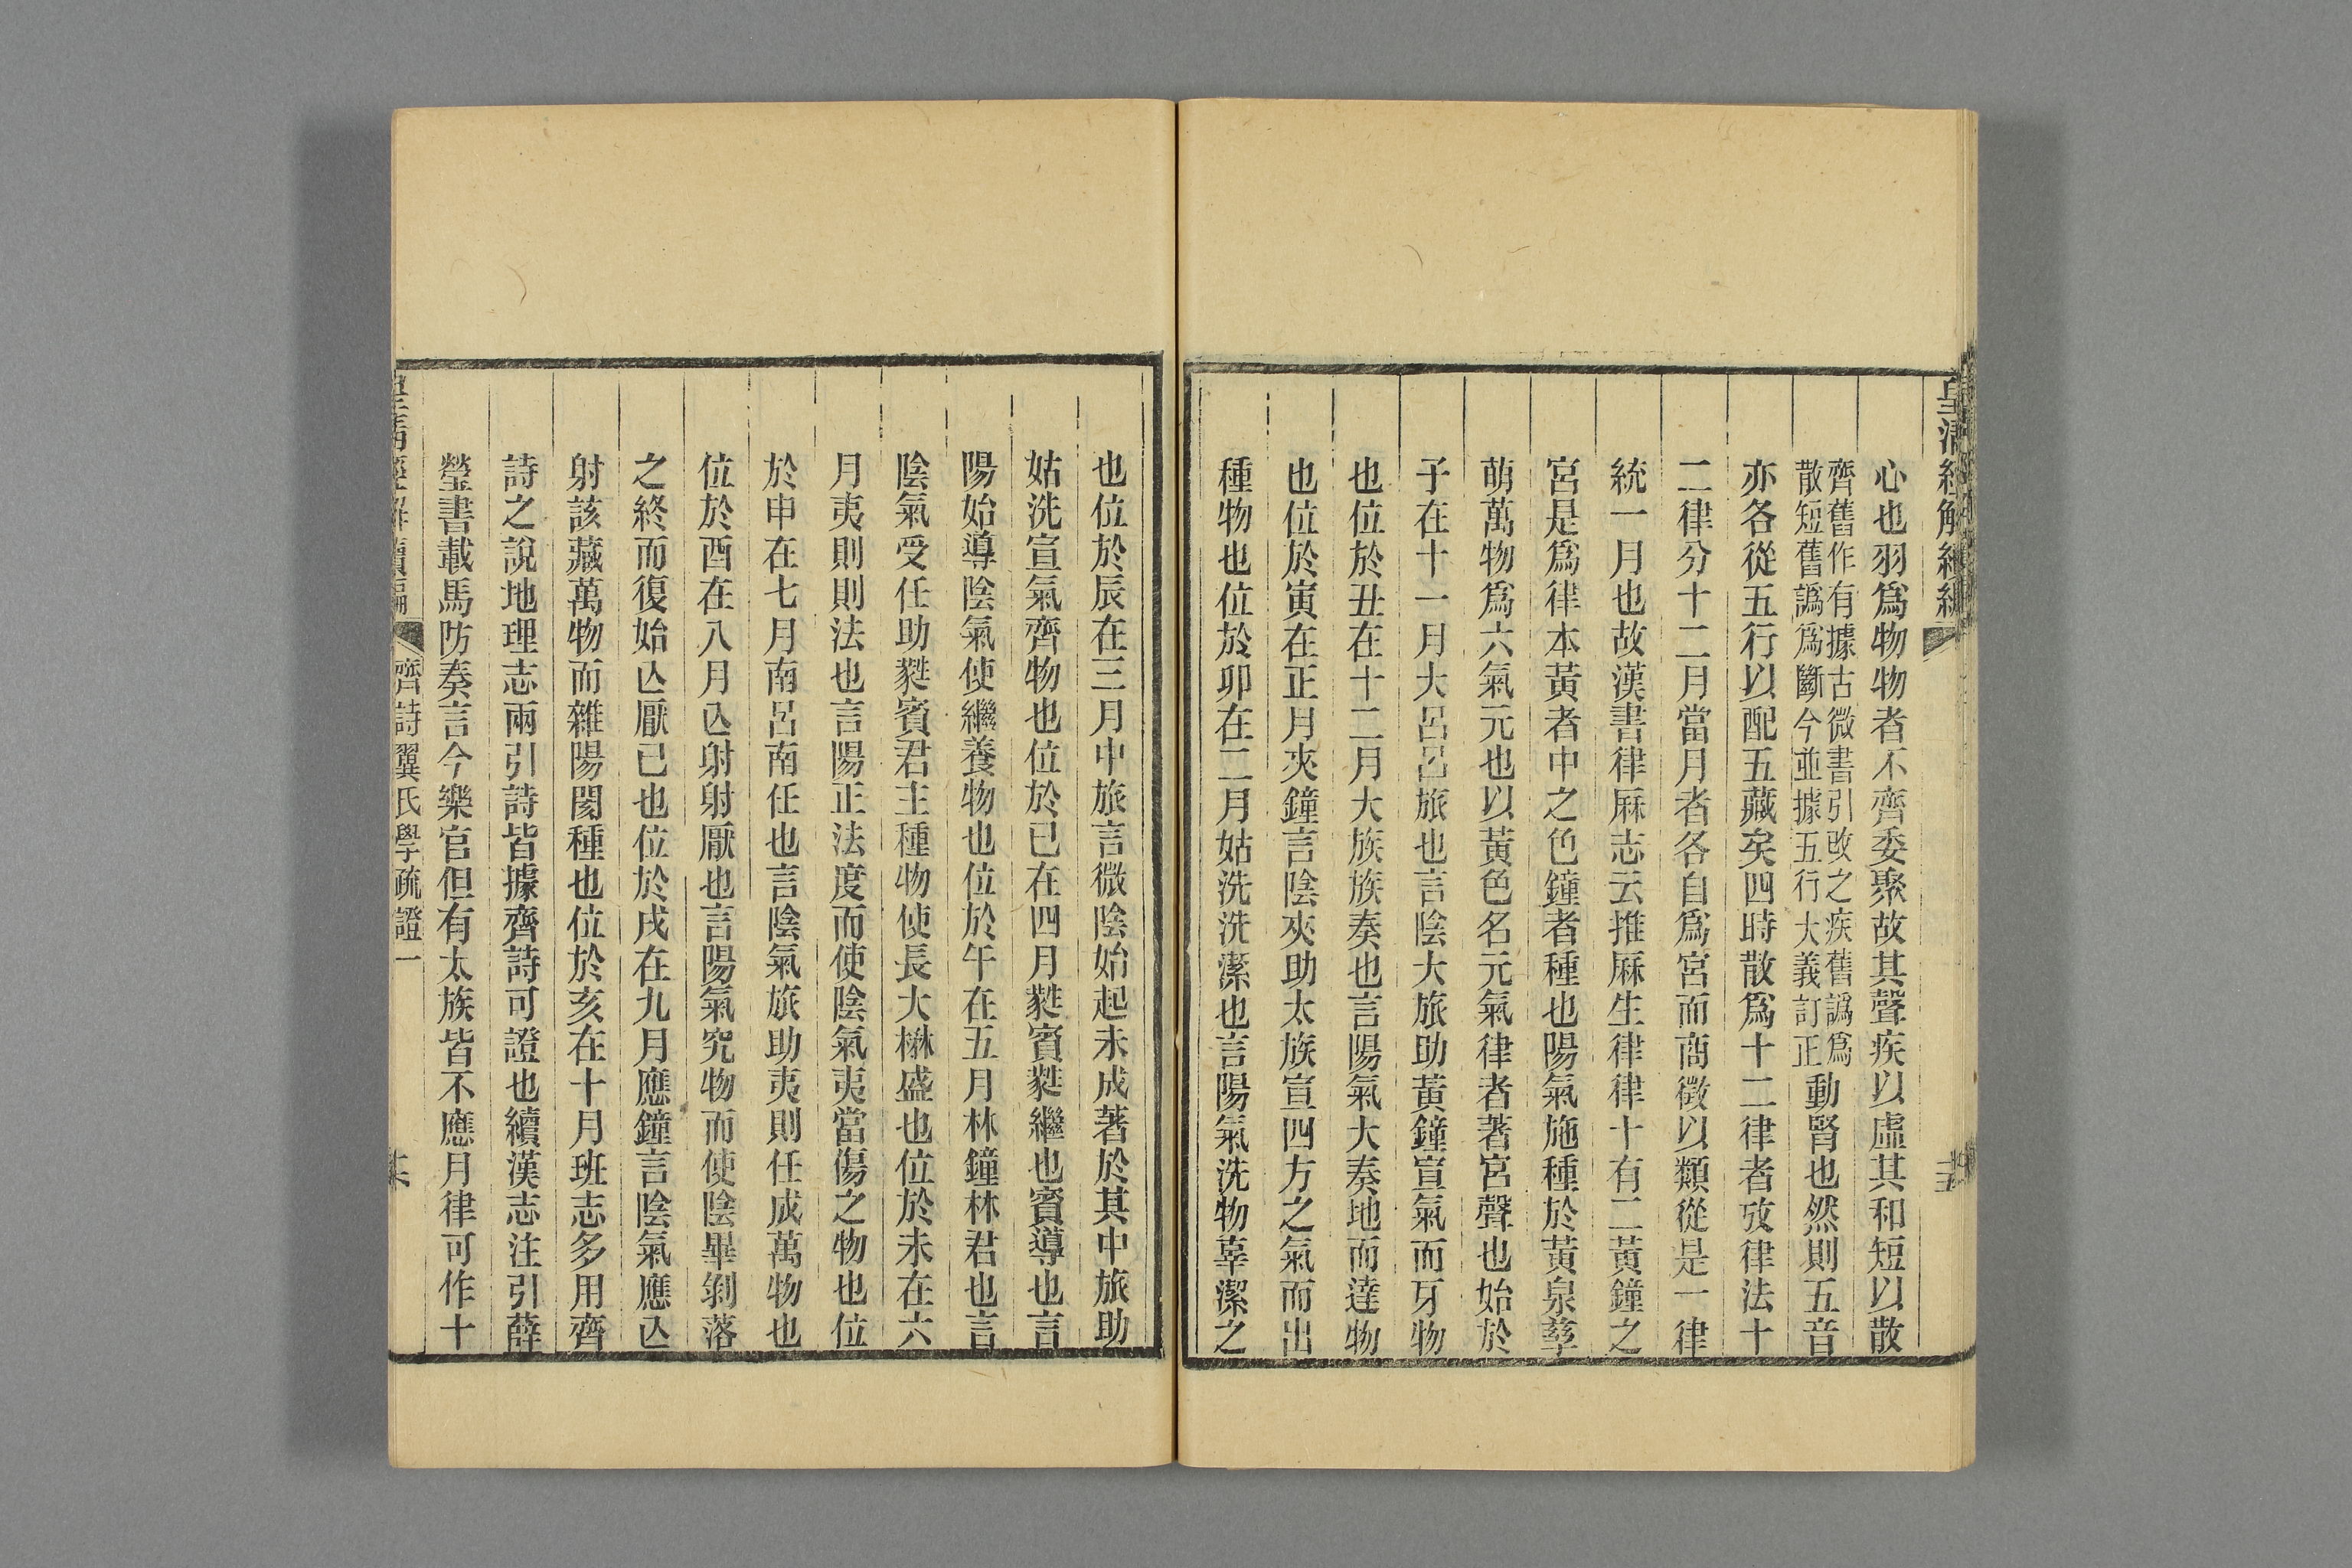 皇清經解續編
心也羽爲物物者不齊委聚故其聲疾以虛其和短以散
齊舊作有據古微書引改之疾舊譌爲
散短舊譌爲斷今並據五行大義訂正
動腎也然則五音
亦各從五行以配五藏矣四時散爲十二律者攷律法十
二律分十二月當月者各自爲宮而商徵以類從是一律
統一月也故漢書律厤志云推厤生律律十有二黃鐘之
宮是爲律本黃者中之色鐘者種也陽氣施種於黃泉孳
萌萬物爲六氣元也以黃色名元氣律者著宮聲也始於
子在十一月大呂呂旅也言陰大旅助黃鐘宣氣而牙物
也位於丑在十二月大族族奏也言陽氣大奏地而達物
也位於寅在正月夾鐘言陰夾助太族宣四方之氣而出
種物也位於卯在二月姑洗洗潔也言陽氣洗物辜潔之
也位於辰在三月中旅言微陰始起未成著於其中旅助
姑洗宣氣齊物也位於巳在四月蕤賓蕤繼也賓導也言
陽始導陰氣使繼養物也位於午在五月林鐘林君也言
陰氣受任助蕤賓君主種物使長大楙盛也位於未在六
月夷則則法也言陽正法度而使陰氣夷當傷之物也位
於申在七月南呂南任也言陰氣旅助夷則任成萬物也
位於酉在八月亾射射厭也言陽氣究物而使陰畢剝落
之終而復始亾厭已也位於戌在九月應鐘言陰氣應亾
射該藏萬物而雜陽閡種也位於亥在十月班志多用齊
詩之說地理志兩引詩皆據齊詩可證也續漢志注引薛
瑩書載馬防奏言今樂官但有太族皆不應月律可作十
皇清經解續編
齊詩翼氏學疏證一